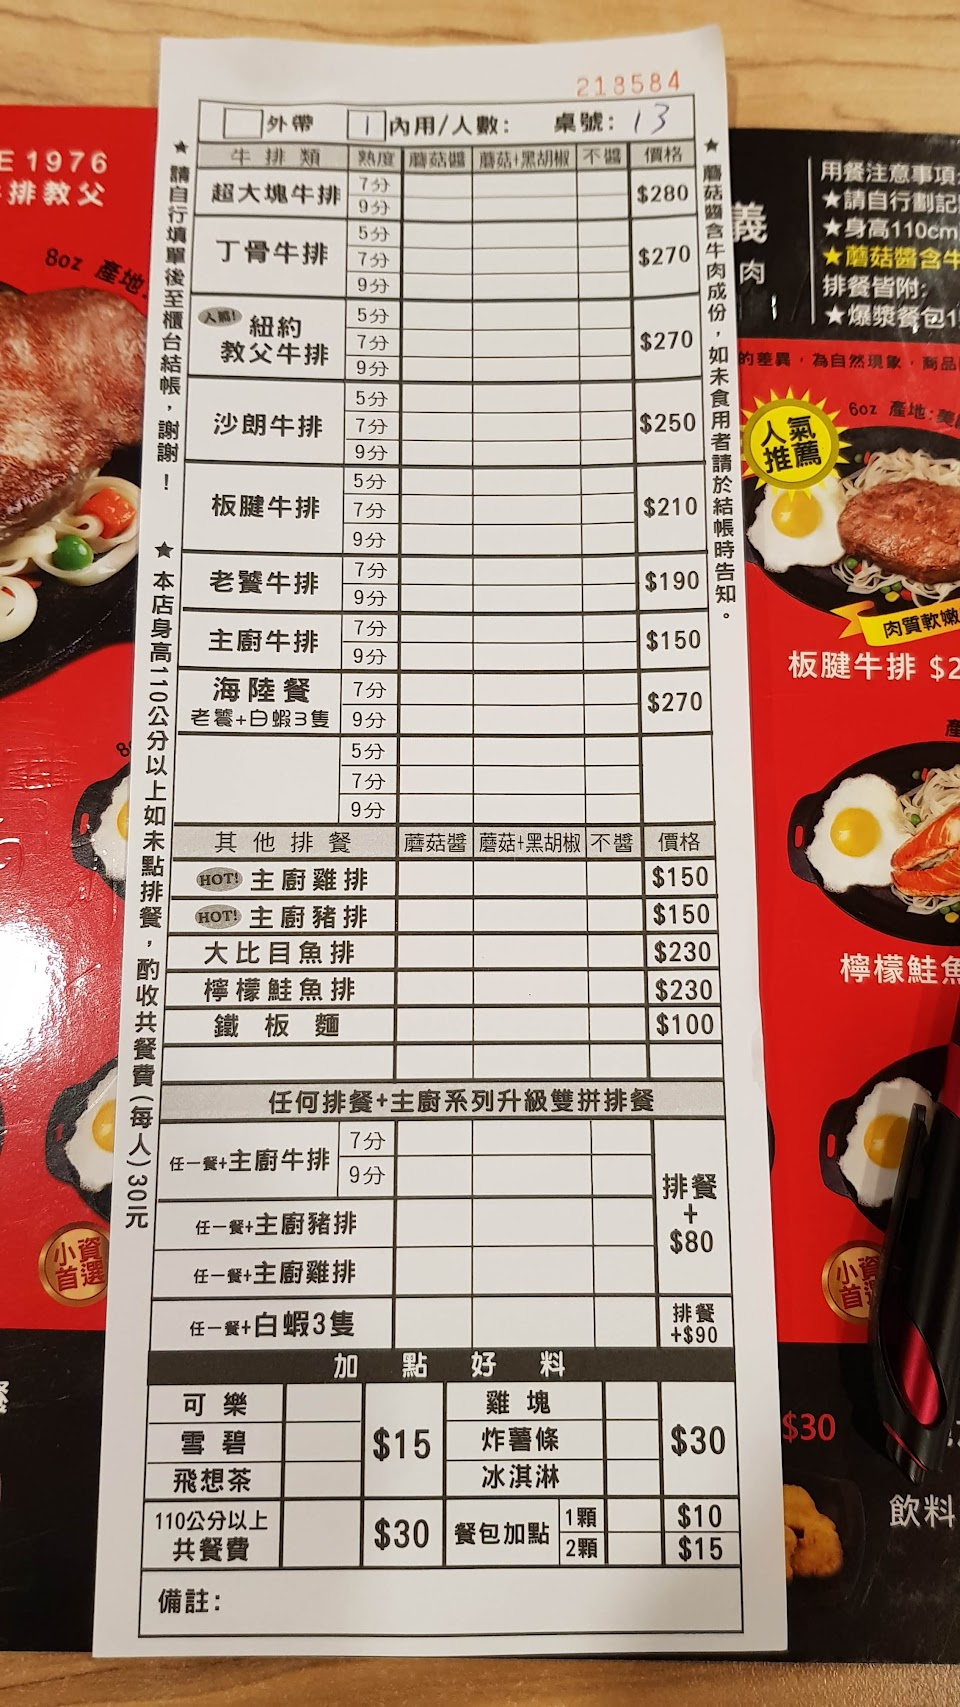 218584
外帶 1 內用/人數: 桌號: 13
牛排類 熟度 蘑菇醬 蘑菇+黑胡椒 不醬 價格
超大塊牛排 7分 9分 $280
丁骨牛排 5分 7分 9分 $270
人氣! 紐約
教父牛排 5分 7分 9分 $270
沙朗牛排 5分 7分 9分 $250
板腱牛排 5分 7分 9分 $210
老饕牛排 7分 9分 $190
主廚牛排 7分 9分 $150
海陸餐
老饕+白蝦3隻 7分 9分 $270
5分 7分 9分
其他排餐 蘑菇醬 蘑菇+黑胡椒 不醬 價格
HOT! 主廚雞排 $150
HOT! 主廚豬排 $150
大比目魚排 $230
檸檬鮭魚排 $230
鐵板麵 $100
任何排餐+主廚系列升級雙拼排餐
任一餐+主廚牛排 7分 9分
任一餐+主廚豬排
任一餐+主廚雞排
排餐
+
$80
任一餐+白蝦3隻
排餐
+$90
加點好料
可樂
雪碧
飛想茶
$15
雞塊
炸薯條
冰淇淋
$30
110公分以上
共餐費
$30
餐包加點
1顆 $10
2顆 $15
備註:
★請自行填單後至櫃台結帳，謝謝！
★本店身高110公分以上如未點排餐，酌收共餐費(每人)30元
★蘑菇醬含牛肉成份，如未食用者請於結帳時告知。
E 1976
排教父
8oz 產地:
小資
首選
義
肉
用餐注意事項:
★請自行劃記
★身高110cm
★蘑菇醬含牛
排餐皆附:
★爆漿餐包1
的差異，為自然現象，商品
6oz 產地:美
人氣
推薦
肉質軟嫩
板腱牛排 $2
檸檬鮭魚
小資
首選
$30
飲料